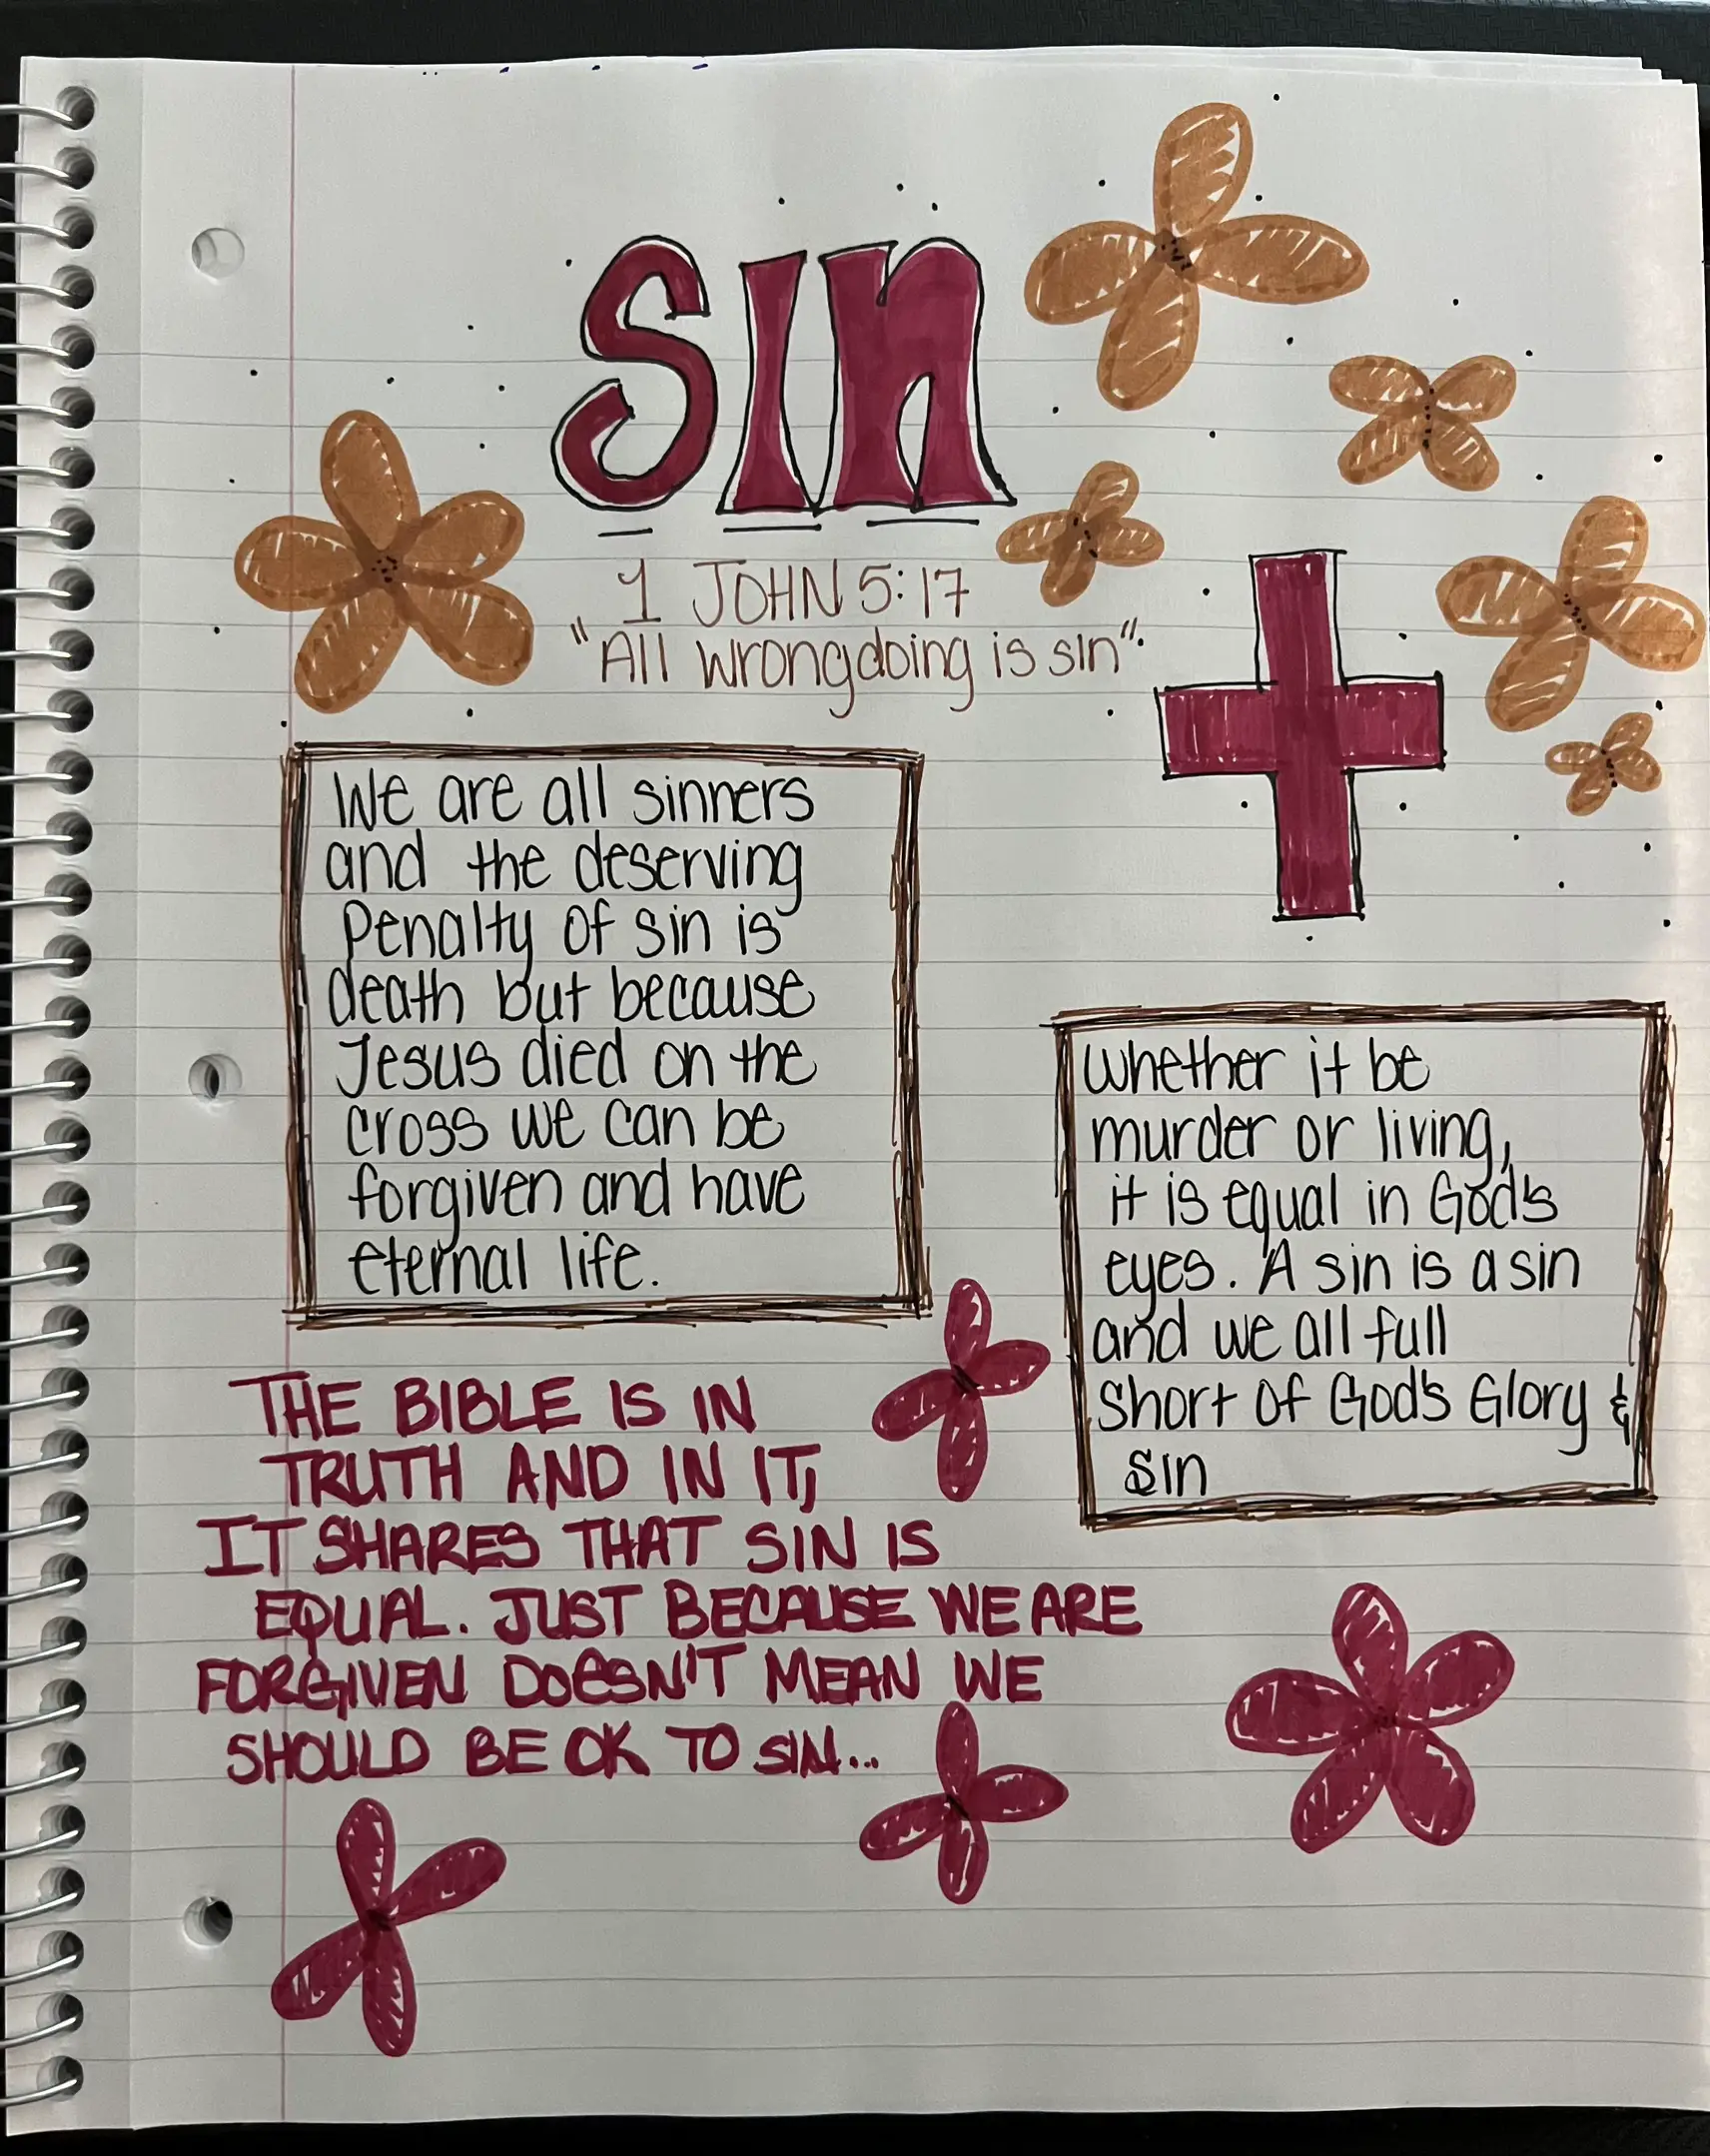 SIn
1 JOHN 5:17
"All wrongdoing is sin".
We are all sinners
and the deserving
Penalty of sin is
death but because
Jesus died on the
cross we can be
forgiven and have
eternal life.
Whether it be
murder or living,
it is equal in God's
eyes. A sin is a sin
and we all full
short of God's Glory &
sin
THE BIBLE IS IN
TRUTH AND IN IT,
IT SHARES THAT SIN IS
EQUAL. JUST BECAUSE WE ARE
FORGIVEN DOESN'T MEAN WE
SHOULD BE OK TO SIN...